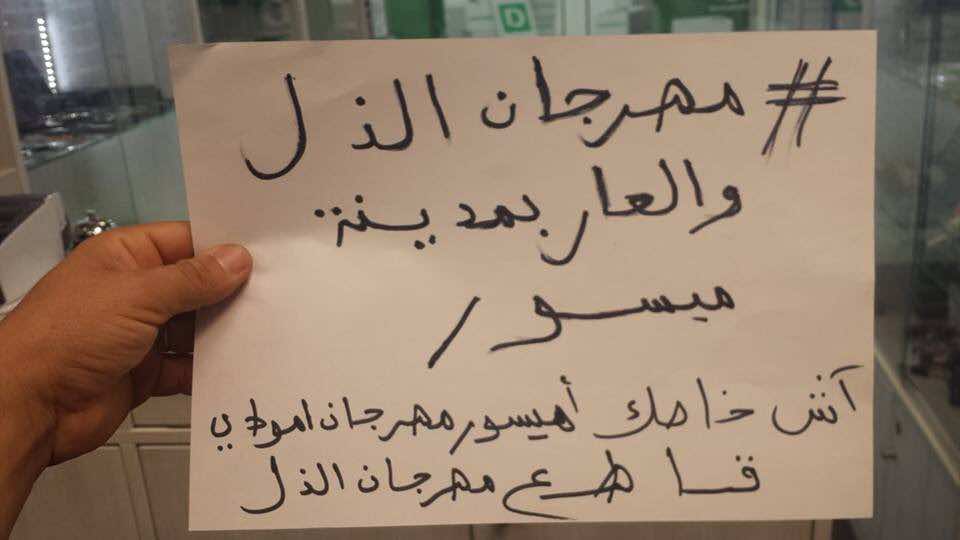 # مهرجان الذل
والعار بمدينة
ميسور
آش خاصك أميسور مهرجان امولاي
قاطع مهرجان الذل
D